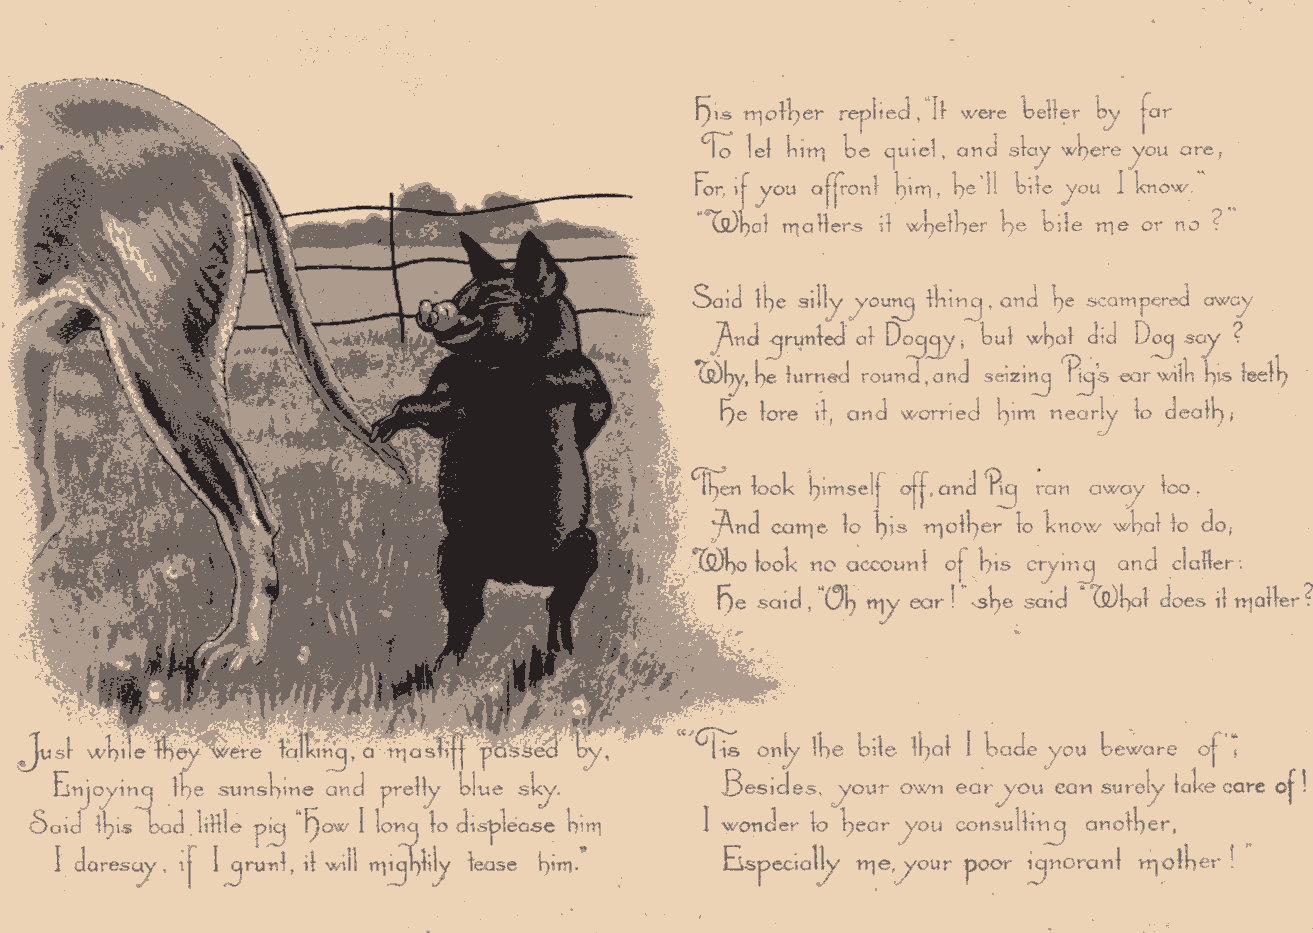 Just while they were talking, a mastiff passed by,
Enjoying the sunshine and pretty blue sky.
Said this bad little pig "How I long to displease him
I daresay, if I grunt, it will mightily tease him."
His mother replied, "It were better by far
To let him be quiet, and stay where you are,
For, if you affront him, he'll bite you I know."
"What matters it whether he bite me or no?"
Said the silly young thing, and he scampered away
And grunted at Doggy; but what did Dog say?
Why, he turned round, and seizing Pig's ear with his teeth
He tore it, and worried him nearly to death;
Then took himself off, and Pig ran away too.
And came to his mother to know what to do;
Who took no account of his crying and clatter:
He said, "Oh my ear!" she said "What does it matter?
"'Tis only the bite that I bade you beware of";
Besides, your own ear you can surely take care of!
I wonder to hear you consulting another,
Especially me, your poor ignorant mother!"